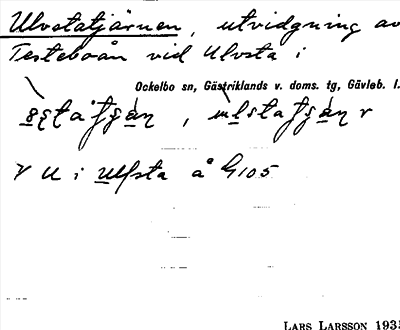 Ulvstatjärnen, utvidgning av
Testeboån vid Ulvsta i
Ockelbo sn, Gästriklands v. doms. tg, Gävleb. l.
V U i Ulfsta å G105
LARS LARSSON 1935